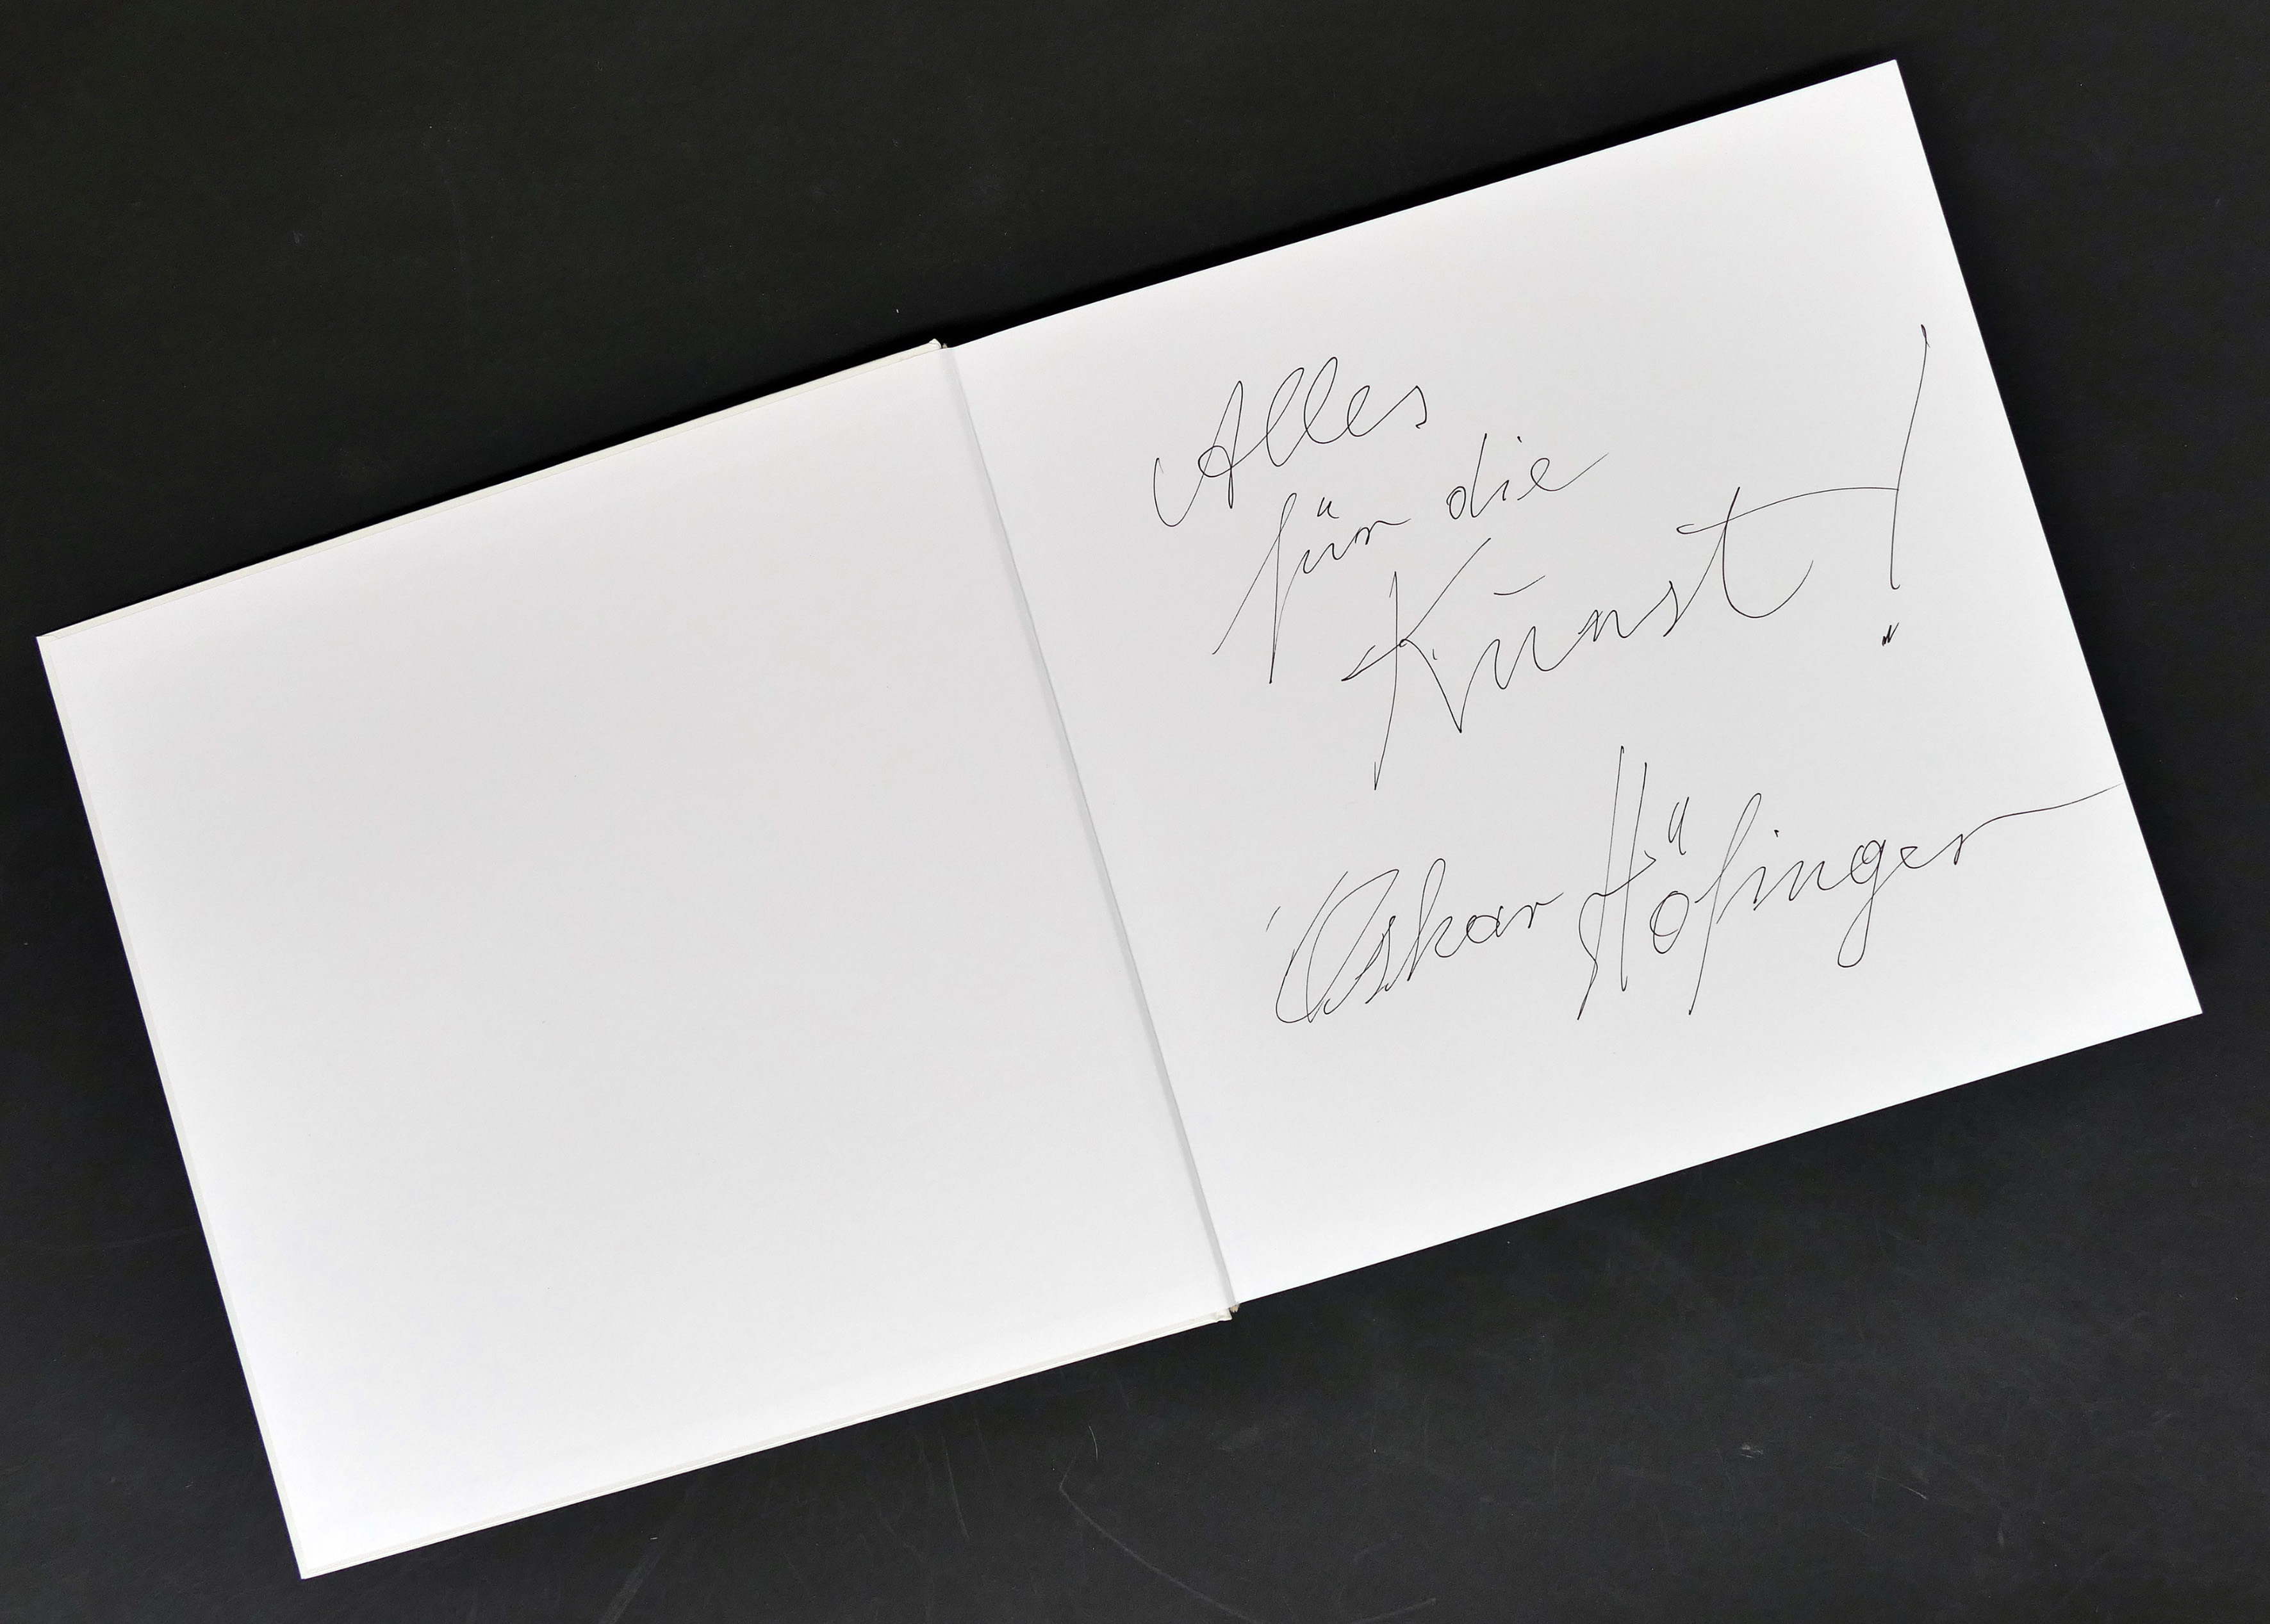 Alles
für die
Kunst!
Oskar Höfinger